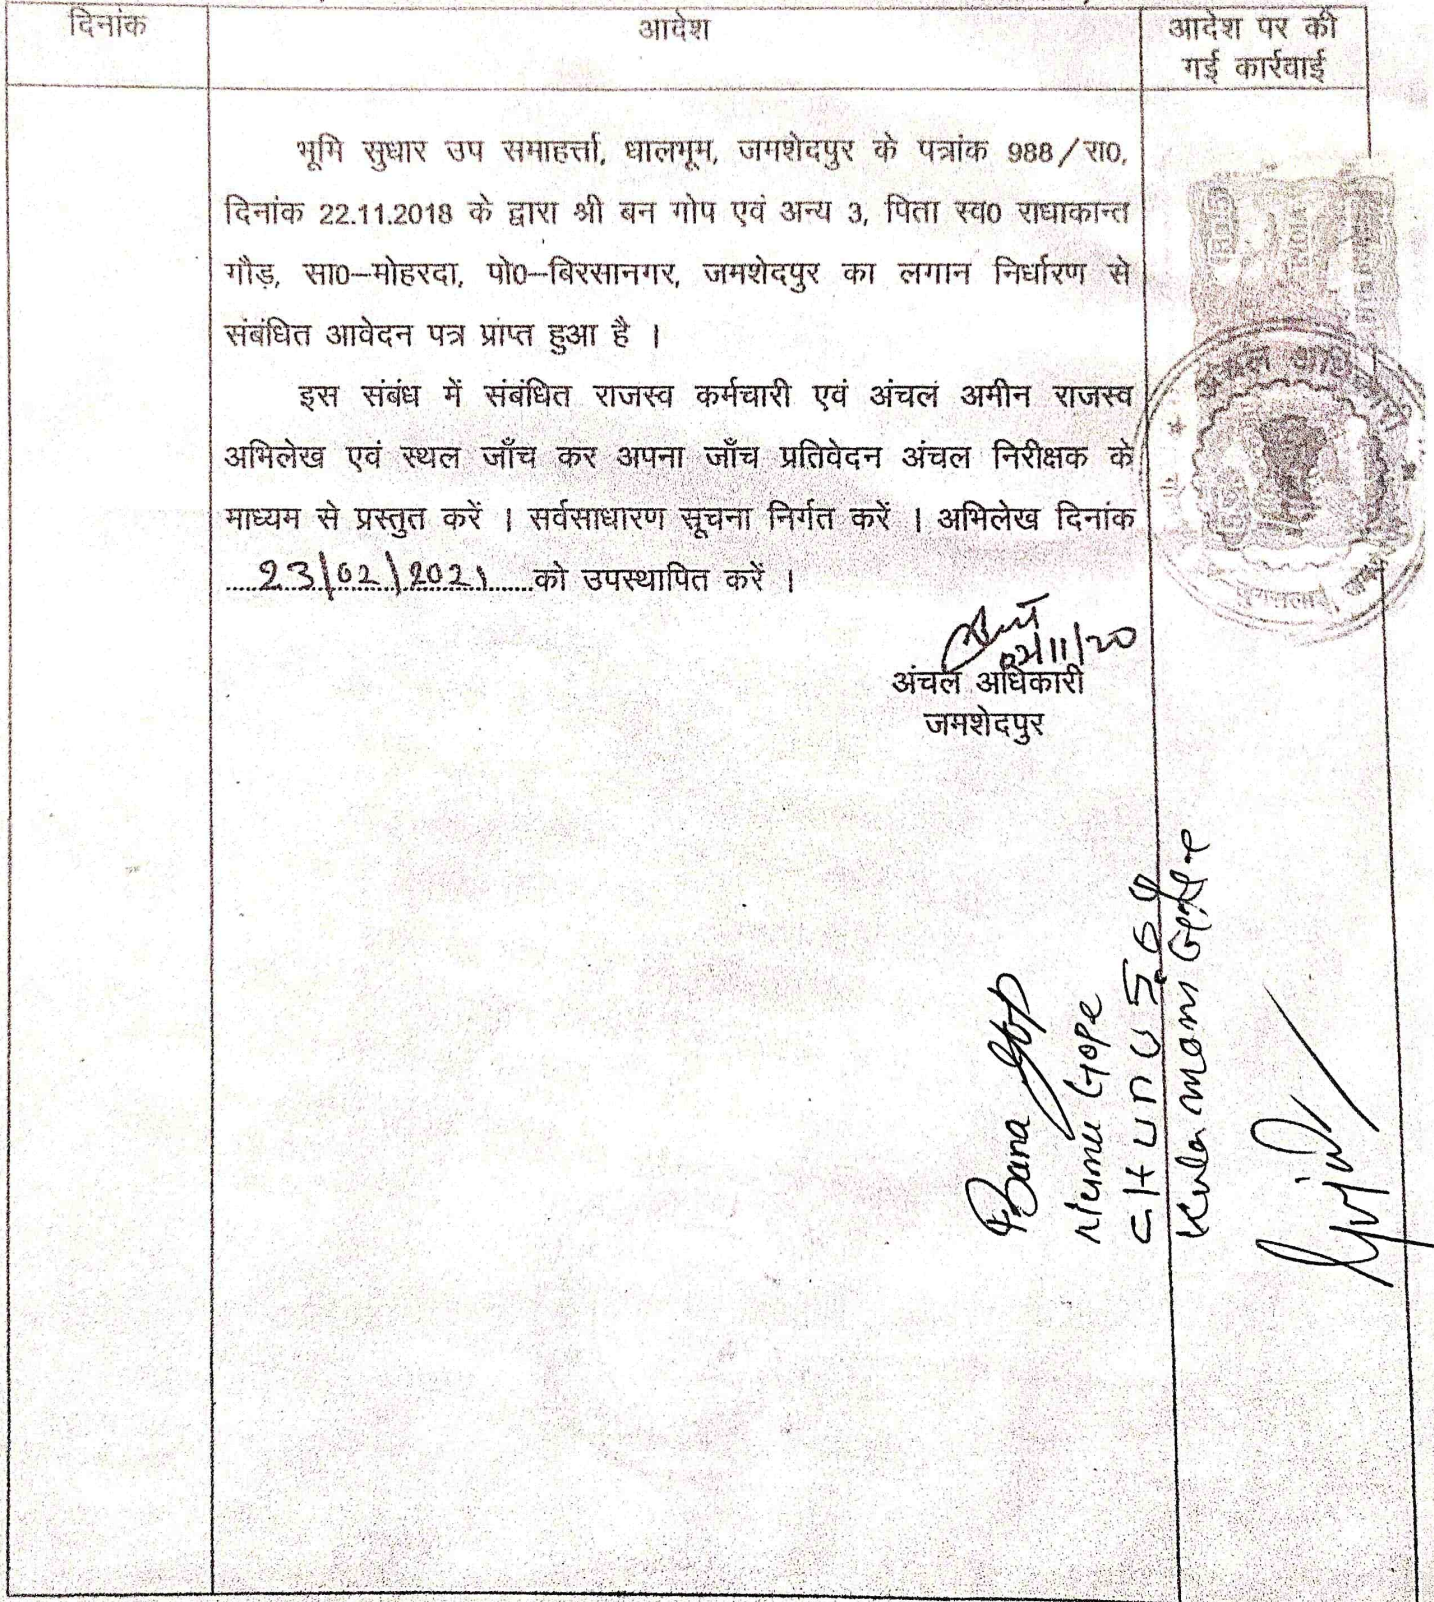 दिनांक
आदेश
आदेश पर की
गई कार्रवाई
भूमि सुधार उप समाहर्त्ता, धालभूम, जमशेदपुर के पत्रांक 988/रा0,
दिनांक 22.11.2018 के द्वारा श्री बन गोप एवं अन्य 3, पिता स्व0 राधाकान्त
गौड़, सा0–मोहरदा, पो0–बिरसानगर, जमशेदपुर का लगान निर्धारण से
संबंधित आवेदन पत्र प्राप्त हुआ है ।
इस संबंध में संबंधित राजस्व कर्मचारी एवं अंचल अमीन राजस्व
अभिलेख एवं स्थल जाँच कर अपना जाँच प्रतिवेदन अंचल निरीक्षक के
माध्यम से प्रस्तुत करें । सर्वसाधारण सूचना निर्गत करें । अभिलेख दिनांक
23/02/2021 को उपस्थापित करें ।
अंचल अधिकारी
जमशेदपुर
अंचल अधिकारी
Bana Gop
Numu Gope
CHUNU